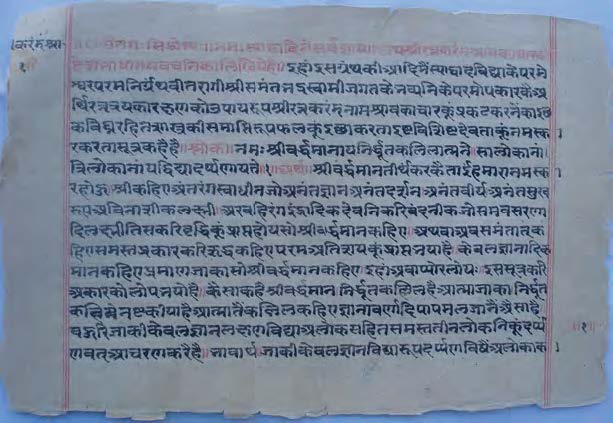 ।करंडश्रा
१
॥ ॐ नमः सिद्धेभ्यः॥
देशभाषामयवचनिका लिखियेहै॥ इहां इसग्रंथकी आदिमैं स्याद्वादविद्याके परमे
श्वर परमनिर्ग्रंथ वीतरागी श्रीसमंतभद्रस्वामी जगतके भव्यनिके परमोपकारके अ
र्थि रत्नत्रयका रक्षणको उपायरूप श्रीरत्नकरंडनाम श्रावकाचारकूं प्रकट करनेके इच्छु
क विघ्नरहित शास्त्रकी समाप्तिरूप फलकूं इच्छा करता इष्ट विशिष्ट देवताकूं नमस्का
र करता सूत्र कहैहै॥ श्लोक॥ नमः श्रीवर्द्धमानाय निर्द्धूतकलिलात्मने॥ सालोकानां
त्रिलोकानां यद्विद्या दर्प्पणायते॥१॥ अर्थ॥ श्रीवर्द्धमान तीर्थंकरकै ताईं हमारा नमस्का
र होऊ॥ श्री कहिए अंतरंग स्वाधीन जो अनंतज्ञान अनंतदर्शन अनंतवीर्य अनंतसुख
रूप अविनाशीक लक्ष्मी॥ अर बहिरंग इंद्रादिक देवनिकरि वंदनीक जो समवसरणा
दि लक्ष्मी तिसकरि वृद्धिकूं प्राप्त होय सो श्रीवर्द्धमान कहिए॥ अथवा अव समंतात् क
हिए समस्त प्रकारकरि ऋद्ध कहिए परम अतिशयकूं प्राप्त भया है॥ केवलज्ञानादिक
मान कहिए प्रमाण जाका सो श्रीवर्द्धमान कहिए॥ इहां अवाप्योरलोपः इस सूत्रकरि
अकारको लोप भयो है॥ कैसाक है श्रीवर्द्धमान निर्द्धूतकलिल है आत्मा जाका॥ निर्द्धूत
कहिये नष्ट कीया है आत्मातै कलिल कहिए ज्ञानावर्णादि पापमल जानै ऐसा है॥
बहुरि जाकी केवलज्ञानलक्षण विद्या अलोकसहित समस्त तीन लोकनिकूं दर्प्प
णवत् आचरण करै है॥ भावार्थ॥ जाकी केवलज्ञानविद्यारूप दर्प्पणविषै अलोकाक
॥१॥